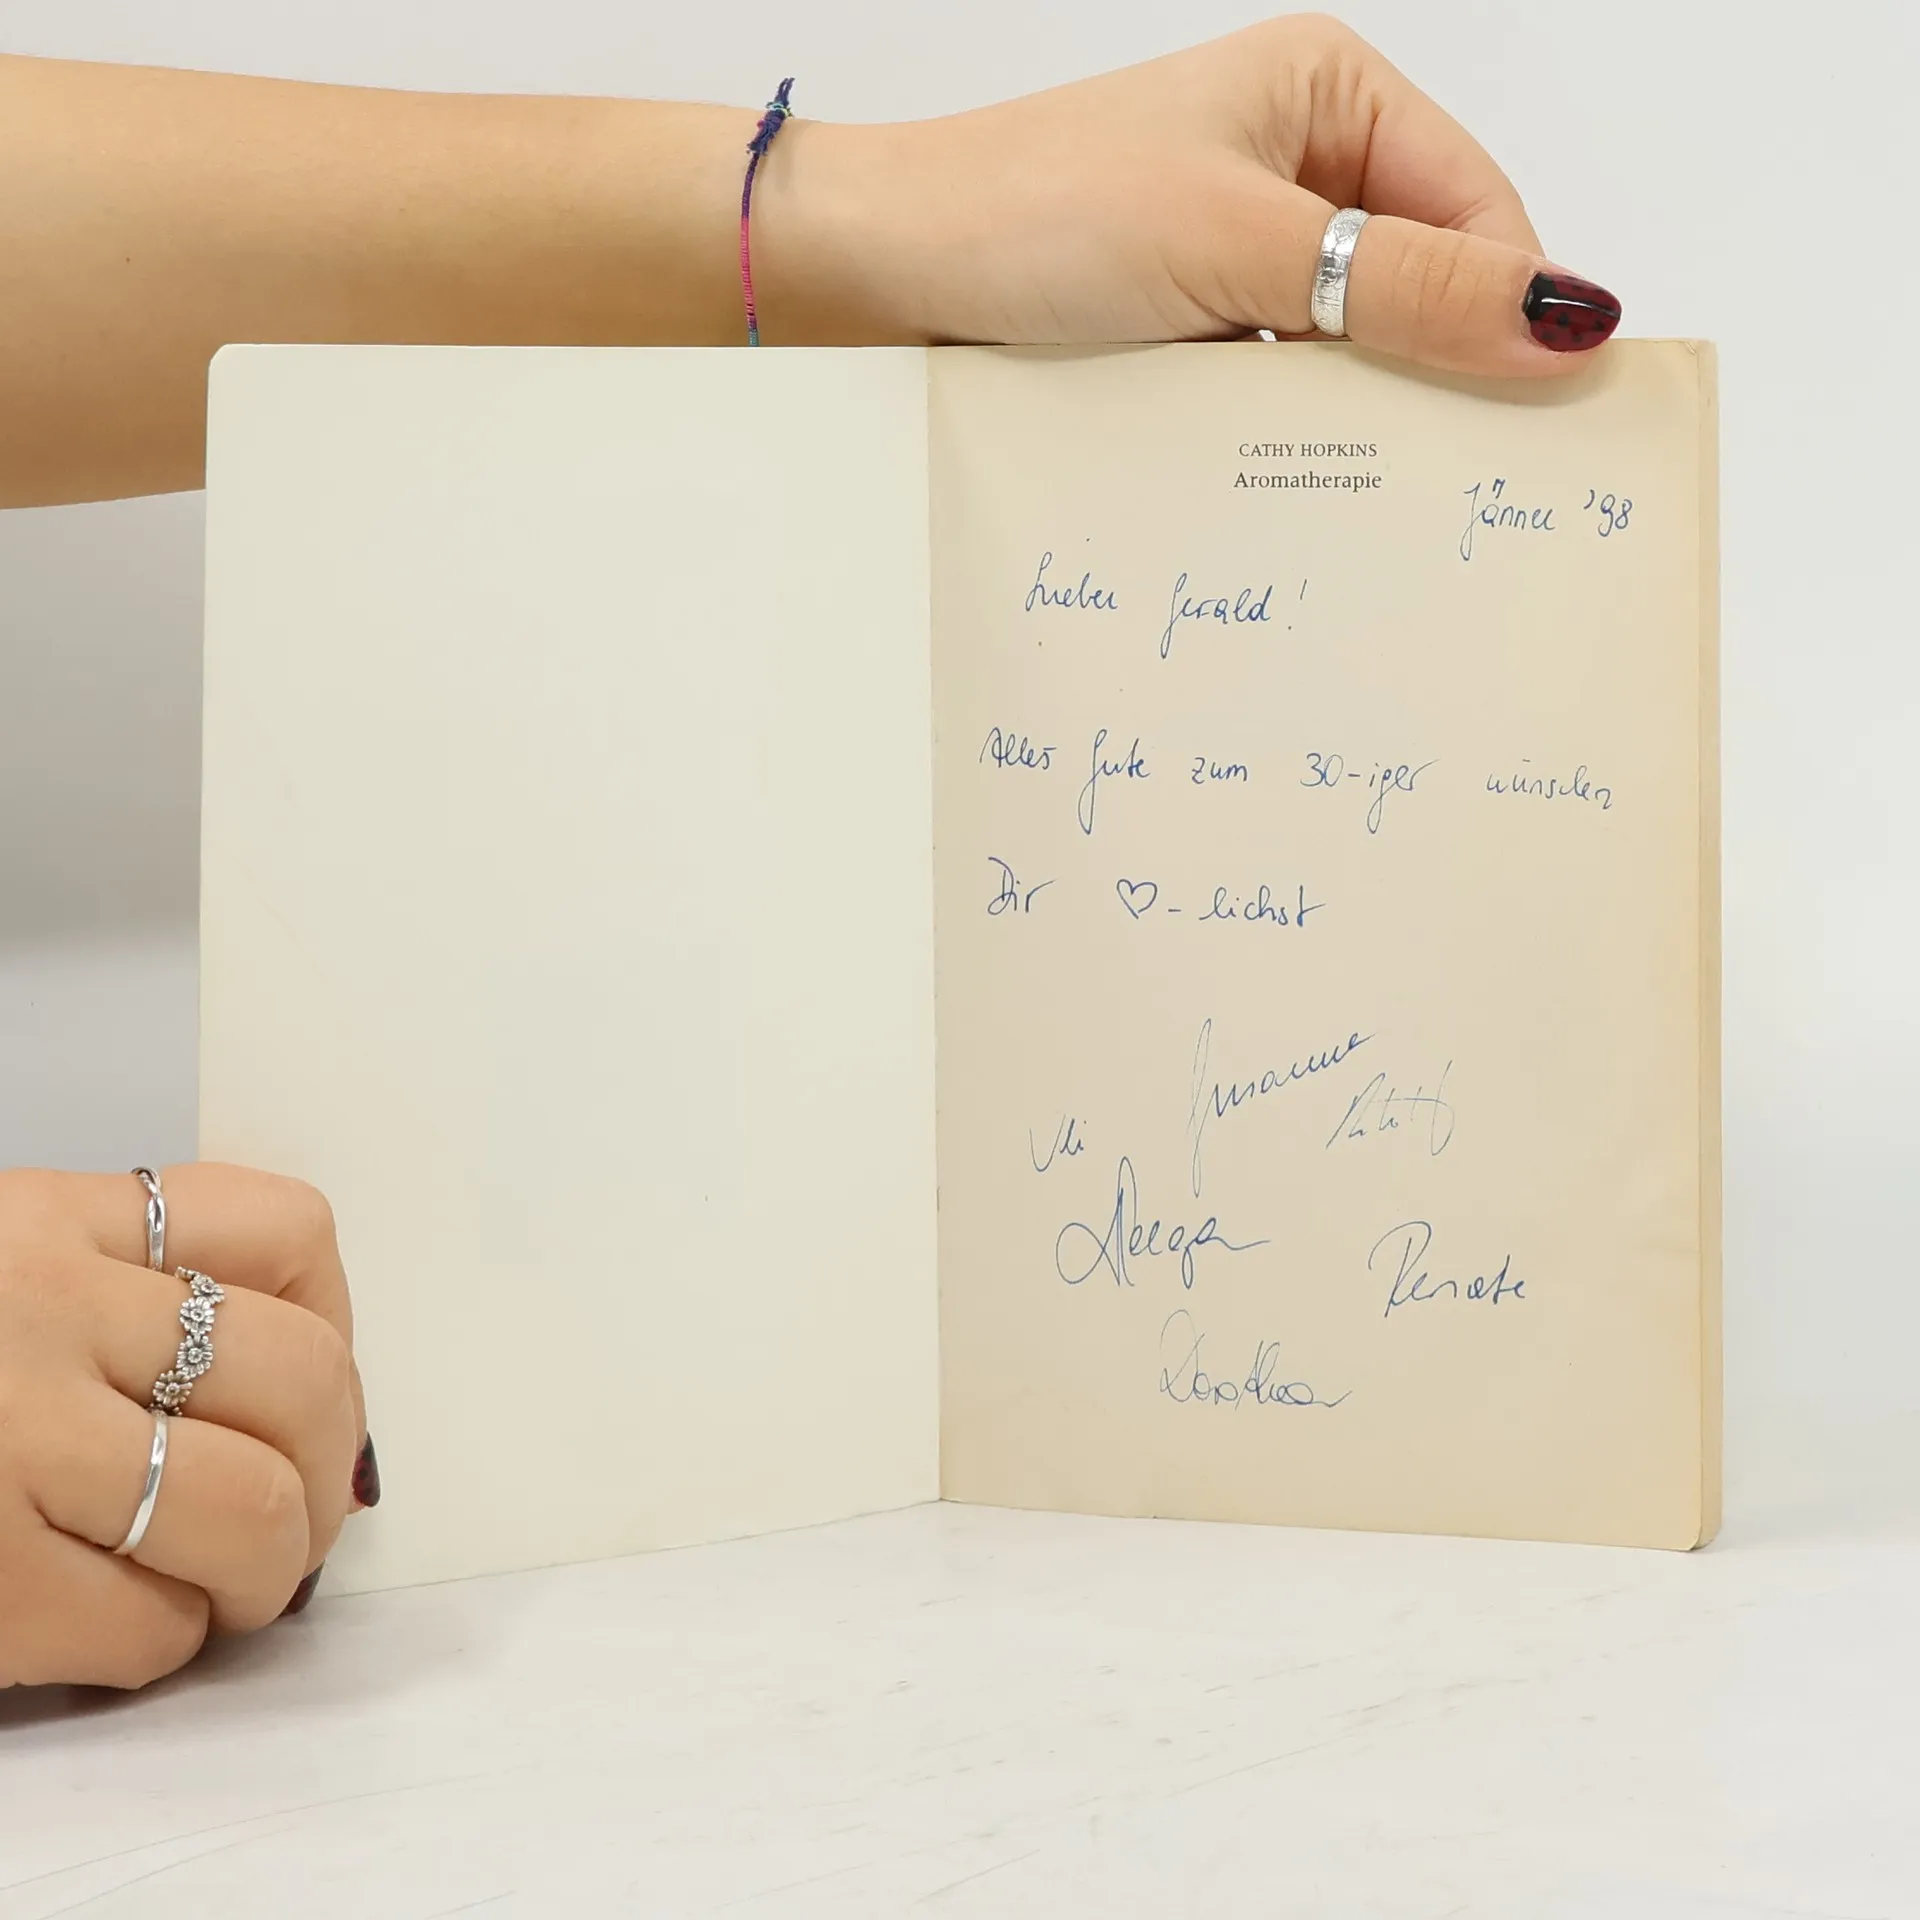 CATHY HOPKINS
Aromatherapie
Jänner '98
Lieber Gerald!
Alles Gute zum 30-iger wünschen
Dir ♡-lichst
Susanne
Uli
Renate
Dorothea